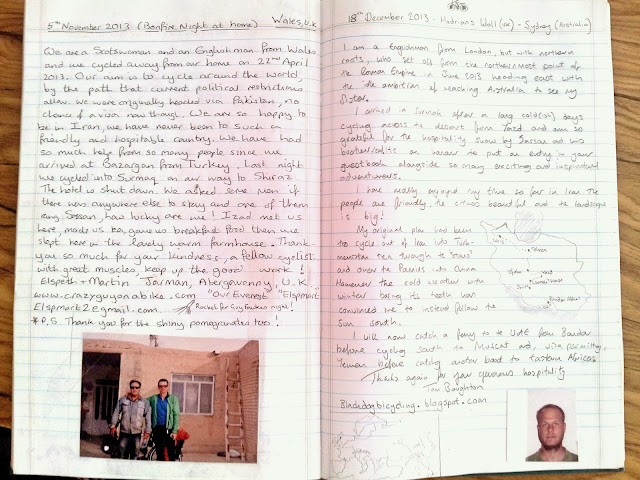 5th November 2013 (Bonfire Night at home) Wales, U.K
We are a Scotswoman and an Englishman from Wales
and we cycled away from our home on 22nd April
2013. Our aim is to cycle around the world,
by the path that current political restrictions
allow. We were originally headed via Pakistan, no
chance of a visa now though. We are so happy to
be in Iran, we have never been to such a
friendly and hospitable country. We have had
so much help from so many people since we
arrived at Bazargan from Turkey. Last night
we cycled into Surmaq on our way to Shiraz.
The hotel is shut down. We asked some men if
there was anywhere else to stay and one of them
rang Sassan, how lucky are we! Izad met us
here, made us tea, gave us breakfast food then we
slept here in the lovely warm farmhouse. Thank-
you so much for your kindness, a fellow cyclist
with great muscles, keep up the good work!
Elspeth + Martin Jarman, Abergavenny, U.K.
www.crazyguyonabike.com "Our Everest" "Elspmart"
Elspmart2@gmail.com. Rocket for Guy Fawkes night!
* P.S. Thank you for the shiny pomegranates too!
18th December 2013 - Hadrians Wall (UK) - Sydney (Australia)
I am a Englishman from London, but with northern
roots, who set off from the northernmost point of
the Roman Empire in June 2013 heading east with
the ambition of reaching Australia to see my
Sister.
I arrived in Surmaq after a long cold(ish) days
cycling across the desert from Yazd and am so
grateful for the hospitality shown by Sassan and his
brother. It is an honour to put an entry in your
guestbook alongside so many exciting and inspirational
adventurers.
I have really enjoyed my time so far in Iran. The
people are friendly, the cities beautiful and the landscape
is big!
My original plan had been
to cycle out of Iran into Turk-
menistan then through to 'Stans'
and over the Pamirs into China.
However the cold weather with
winter baring its teeth has
convinced me to instead follow the
sun south.
Tehran
Yazd
I will now catch a ferry to the UAE from Bandar
before cycling south to Muscat and, visa permitting,
Yemen before catching another boat to Eastern Africa.
Thanks again for your generous hospitality
Tom Boughton
Blackdogbicycling.blogspot.com